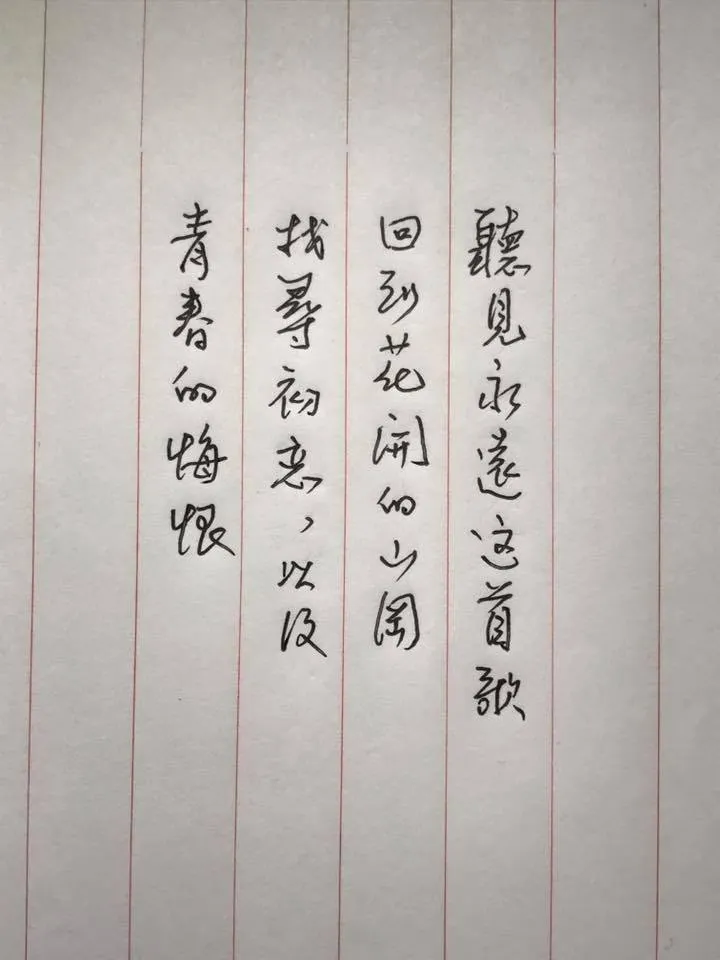 聽見永遠这首歌
回到花開的山岡
找尋初恋，以及
青春的悔恨